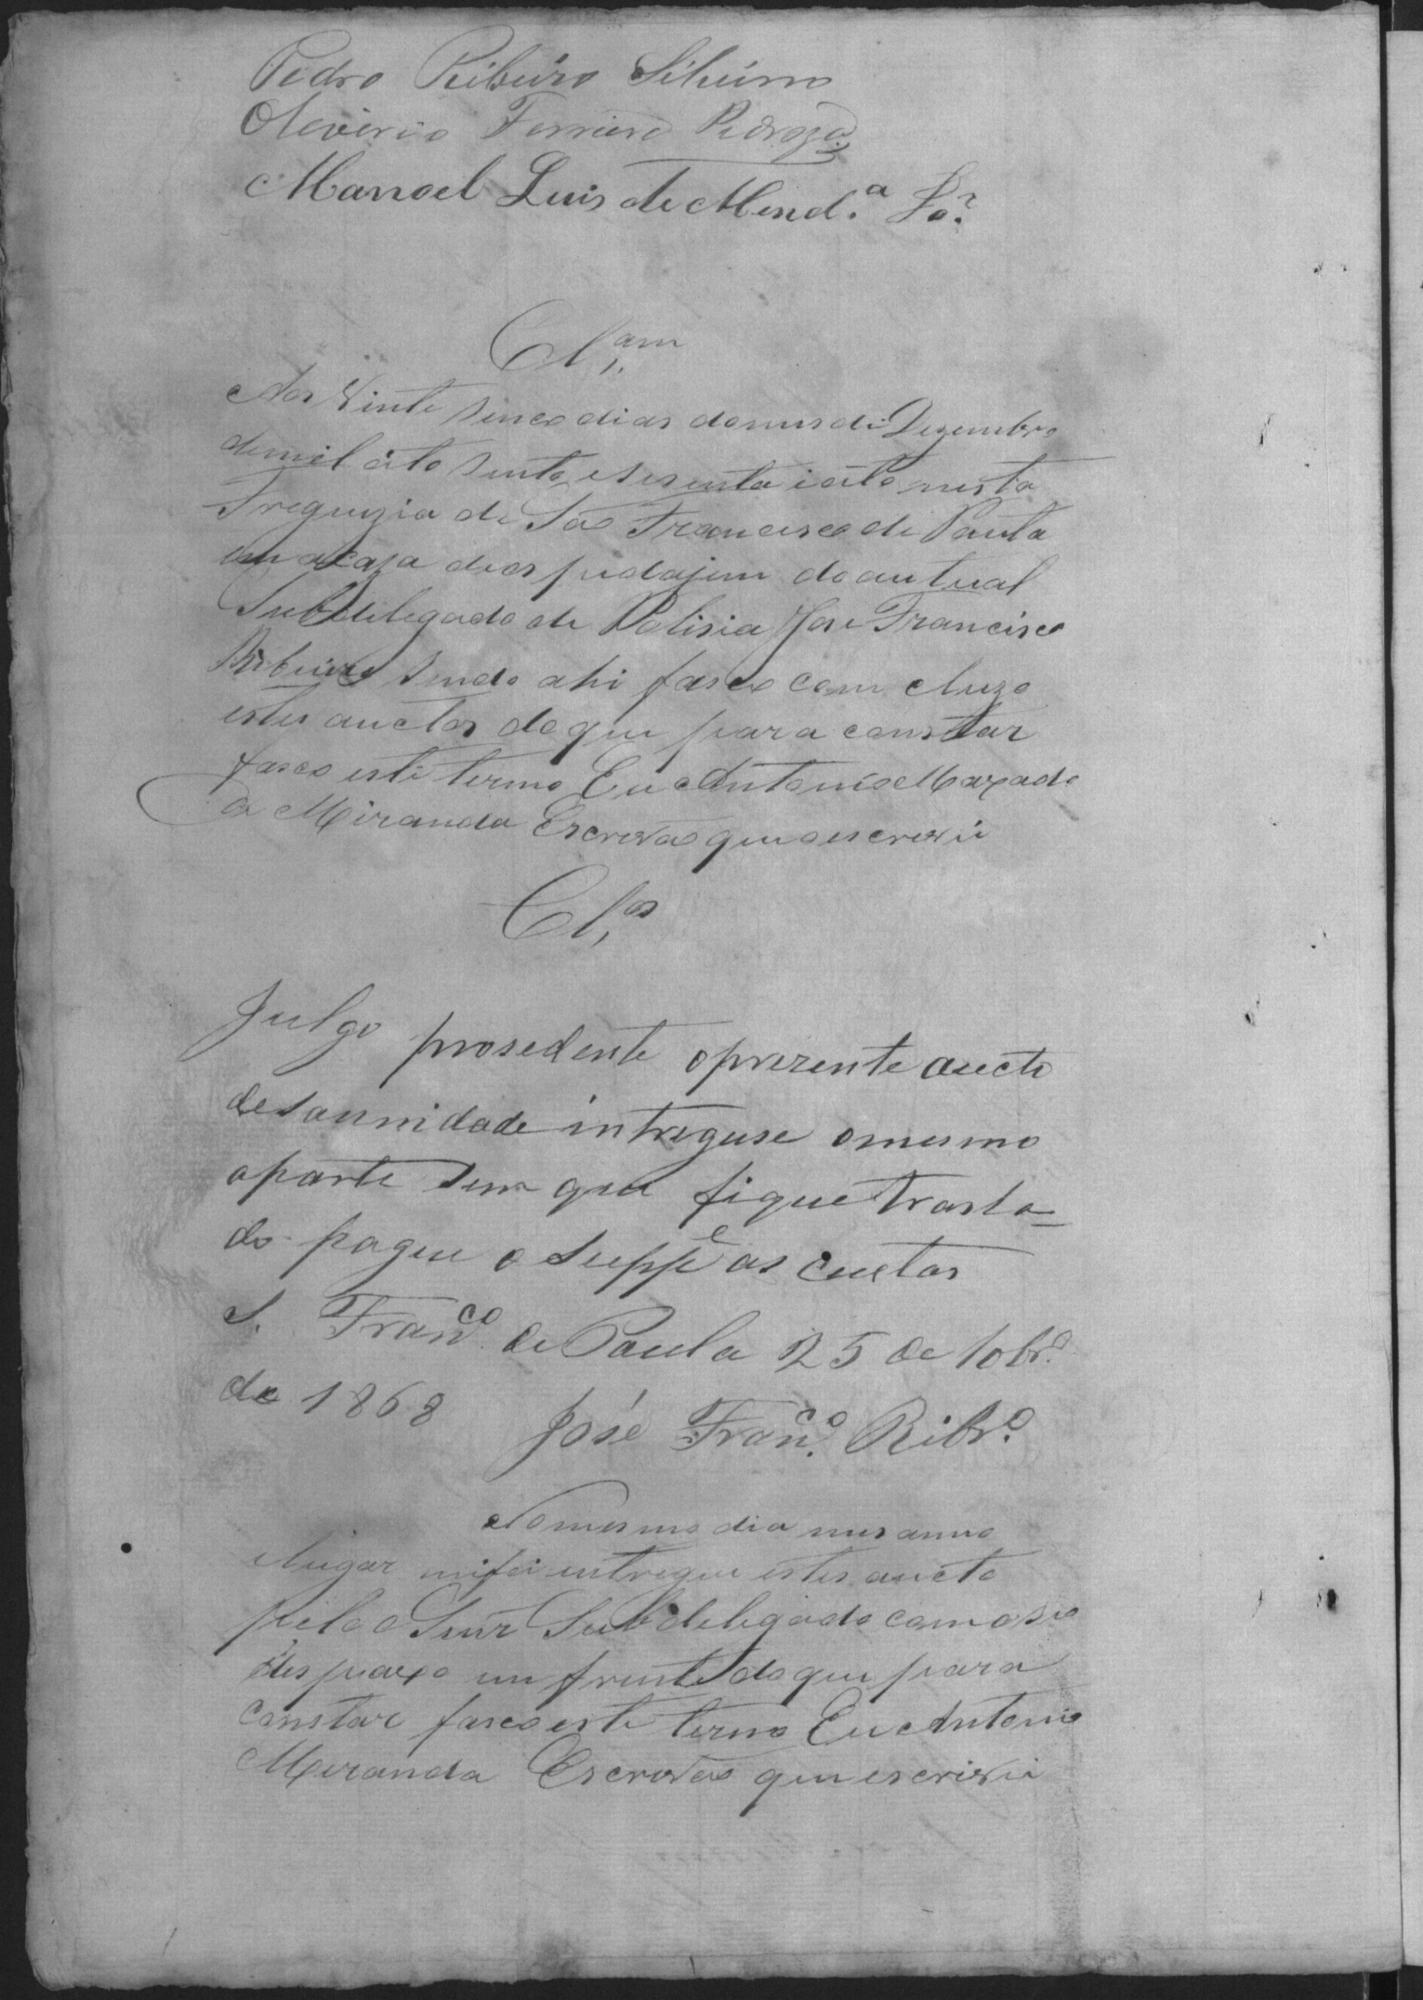 Pedro Ribeiro
Oliverio Ferreira Pedroza
Manoel Luis de Mend.ª
Cl.am
Aos Vinte sinco dias do mes di Dezembro
di mil oito sento e sesenta i oito nesta
Freguizia di São Francisco di Paula
em a caza di os pudajem do autual
Subdilegado di Polisia Jose Francisco
Ribeiro sendo ahi fasco com cluzo
estes auctos do que para constar
fasco esti termo Eu Antonio Maxado
di Miranda Escrivão que o escrivi
Cl.os
Julgo prosedente o prezente aucto
de sannidade intreguse o mesmo
a parte sem que fique trasla=
do pague o Supp.e as custas
S. Fran.co de Paula 25 de 10br.o
de 1868 José Fran.co Ribr.o
No mesmo dia mes anno
e lugar mi foi entregue estes aucto
pelo o Snr Subdelegado com o sio
despaxo em frente do que para
constar fasco esti termo Eu Antonio
Miranda Escrivão que escrivi